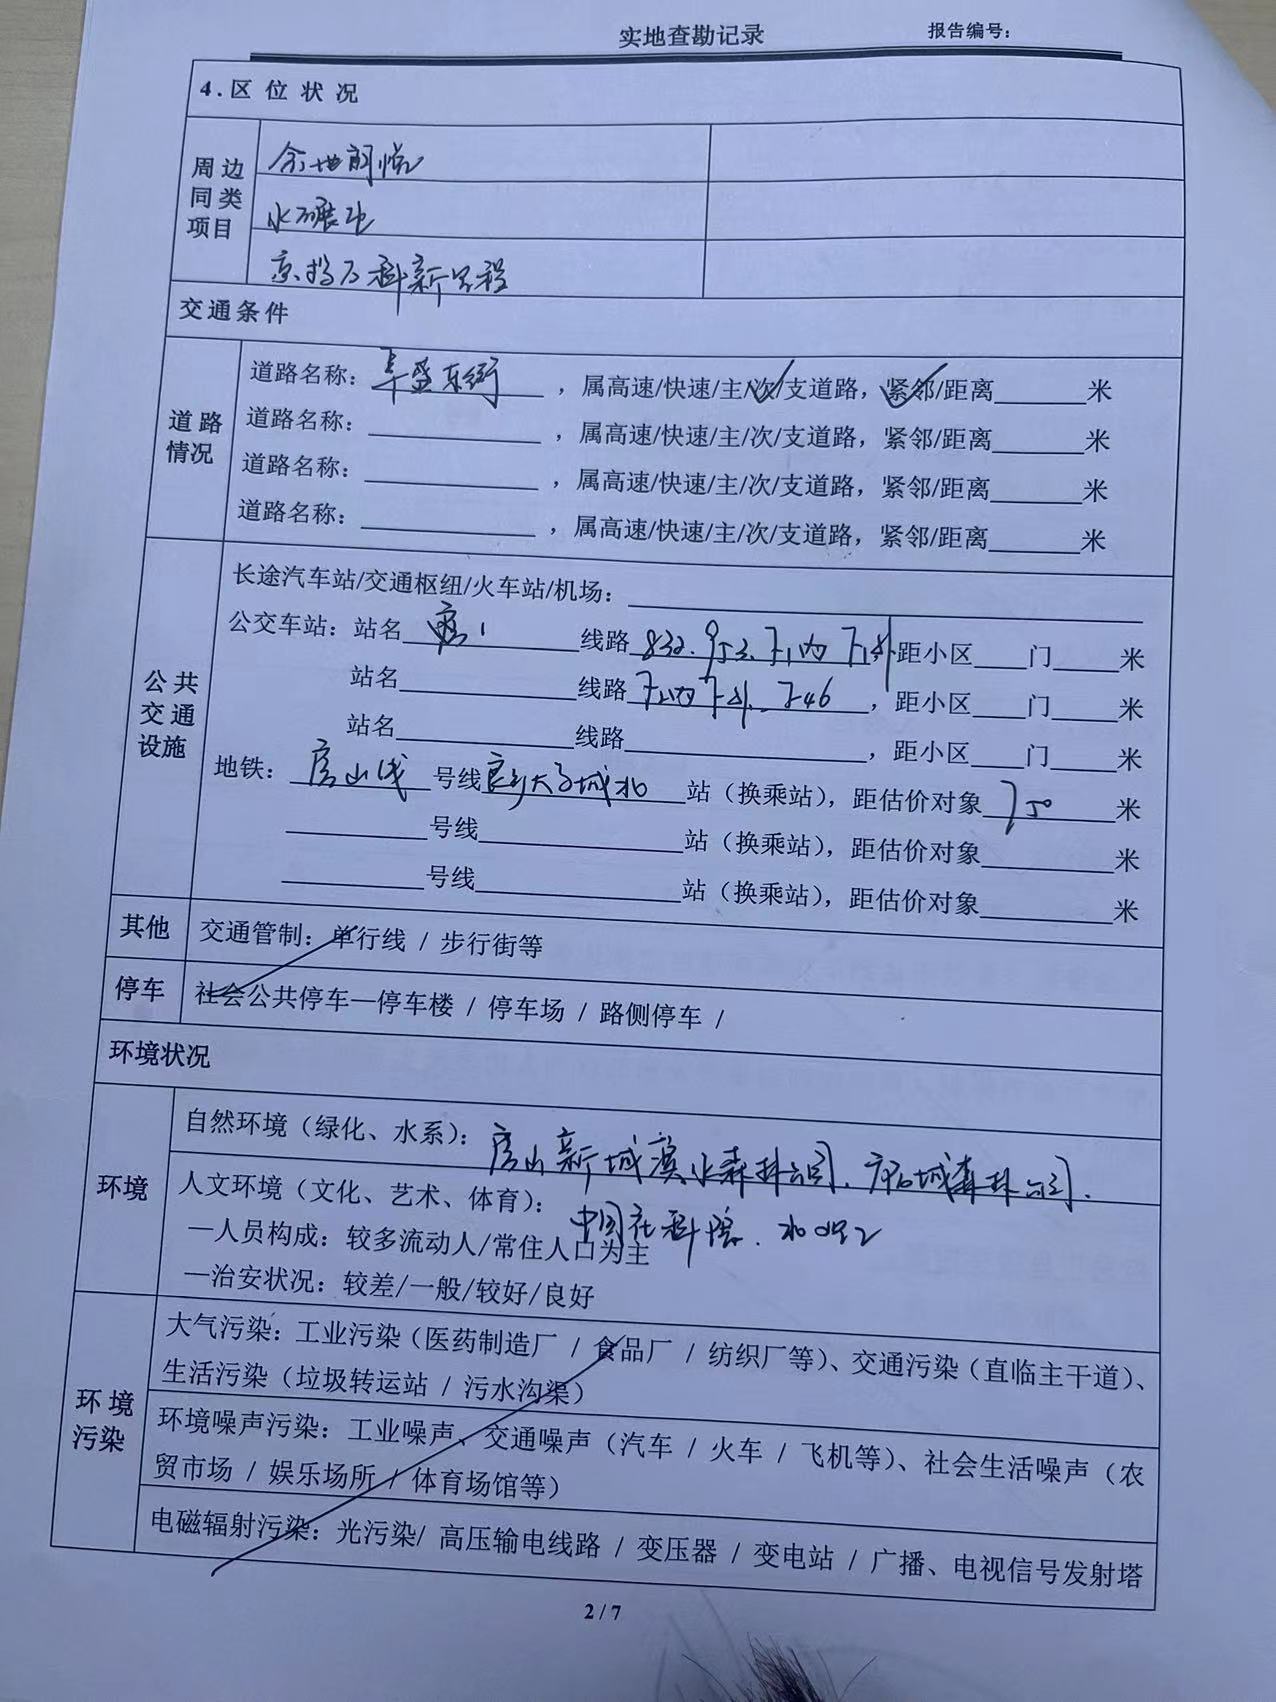 实地查勘记录
报告编号：
4.区 位 状 况
周 边
同 类
项目
金地朗悦
水碾屯
京投万科新里程
交通条件
道 路
情况
道路名称： 东街 ，属高速/快速/主/次/支道路，紧邻/距离 米
道路名称： ，属高速/快速/主/次/支道路，紧邻/距离 米
道路名称： ，属高速/快速/主/次/支道路，紧邻/距离 米
道路名称： ，属高速/快速/主/次/支道路，紧邻/距离 米
公 共
交 通
设施
长途汽车站/交通枢纽/火车站/机场：
公交车站：站名 线路 832. 953. F1内 F1外 距小区 门 米
站名 线路 F46 ，距小区 门 米
站名 线路 ，距小区 门 米
地铁： 房山线 号线 良乡大学城北 站（换乘站），距估价对象 750 米
号线 站（换乘站），距估价对象 米
号线 站（换乘站），距估价对象 米
其他
交通管制：单行线 / 步行街等
停车
社会公共停车—停车楼 / 停车场 / 路侧停车 /
环境状况
环境
自然环境（绿化、水系）： 房山新城滨水森林公园、 城森林公园、
人文环境（文化、艺术、体育）： 中国社科院、北理工
—人员构成：较多流动人/常住人口为主
—治安状况：较差/一般/较好/良好
环 境
污染
大气污染：工业污染（医药制造厂 / 食品厂 / 纺织厂等）、交通污染（直临主干道）、
生活污染（垃圾转运站 / 污水沟渠）
环境噪声污染：工业噪声、交通噪声（汽车 / 火车 / 飞机等）、社会生活噪声（农
贸市场 / 娱乐场所 / 体育场馆等）
电磁辐射污染：光污染/ 高压输电线路 / 变压器 / 变电站 / 广播、电视信号发射塔
2 / 7